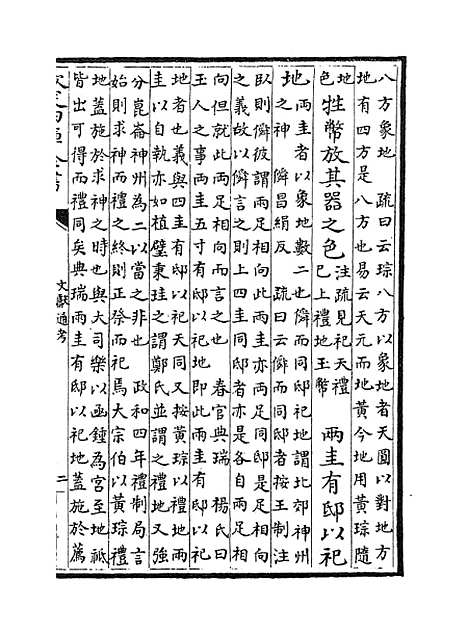 八方象地　疏曰云琮八方以象地者天圓以對地方
地有四方是八方也易云天元而地黃今地用黃琮隨
地色　牲幣放其器之色　注疏見祀天禮已上禮地玉幣　兩圭有邸以祀
地　兩圭者以象地數二也僢而同邸祀地謂北郊神州
之神　僢昌絹反　疏曰云僢而同邸者按王制注
臥則僢彼謂兩足相向此兩圭亦兩足同邸是足相向
之義故以僢言之則上四圭同邸者亦是各自兩足相
向但就此兩足相向而言之也　春官典瑞　楊氏曰
玉人之事兩圭五寸有邸以祀地即此兩圭有邸以祀
地者也義與四圭有邸以祀天同又按黃琮以禮地兩
圭以自執亦如植璧秉珪之謂鄭氏並謂之禮地又強
分崑崙神州為二以當之非也　政和四年禮制局言
始則求神而禮之終則正祭而祀焉大宗伯以黃琮禮
地蓋施於求神之時也與大司樂以函鍾為宮至地祇
皆出可得而禮同矣典瑞兩圭有邸以祀地蓋施於薦
文獻通考
二